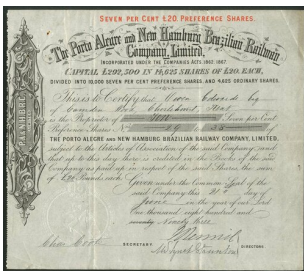 SEVEN PER CENT £20 PREFERENCE SHARES.
The Porto Alegre and New Hamburg Brazilian Railway
Company, Limited.
INCORPORATED UNDER THE COMPANIES ACTS, 1862, 1867.
CAPITAL £292,500 IN 14,625 SHARES OF £20. EACH,
DIVIDED INTO 10,000 SEVEN PER CENT PREFERENCE SHARES, AND 4,625 ORDINARY SHARES.
This is to Certify that Owen Edwards Esq
of
is the Proprietor of Ten Seven per Cent
Preference Shares
THE PORTO ALEGRE AND NEW HAMBURG BRAZILIAN RAILWAY COMPANY, LIMITED.
subject to the Articles of Association of the said Company and
that up to this day there is credited in the Books of the said
Company as paid up in respect of the said Shares the sum
of £20 Pounds each.
Given under the Common Seal of the
said Company this 21st day of
June in the year of our Lord
One thousand eight hundred and
Ninety three
SECRETARY
DIRECTORS